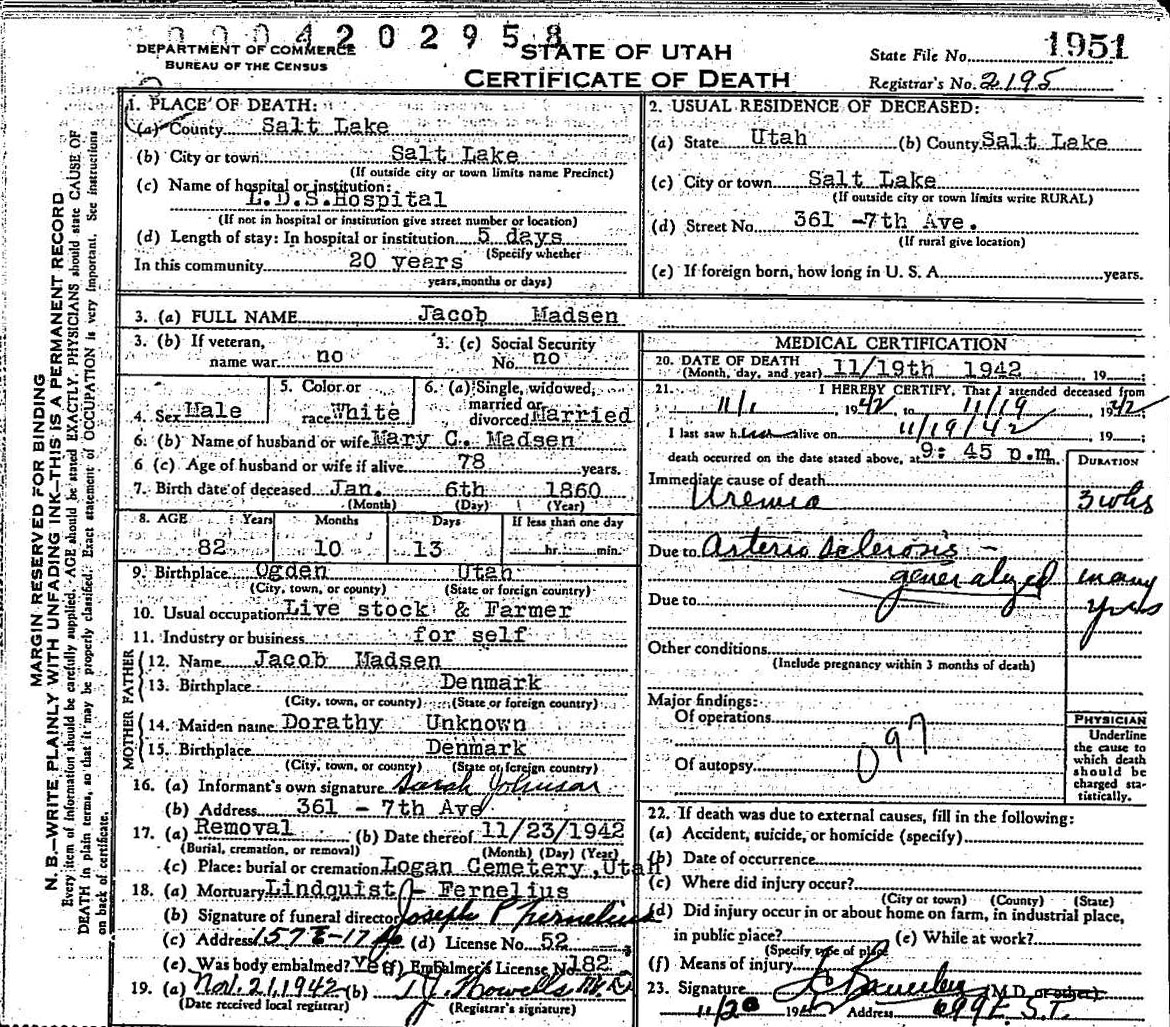 0004202958
DEPARTMENT OF COMMERCE
BUREAU OF THE CENSUS
STATE OF UTAH
CERTIFICATE OF DEATH
State File No. 1951
Registrar's No. 2195
MARGIN RESERVED FOR BINDING
N. B.—WRITE PLAINLY WITH UNFADING INK—THIS IS A PERMANENT RECORD
Every item of information should be carefully supplied. AGE should be stated EXACTLY. PHYSICIANS should state CAUSE OF
DEATH in plain terms, so that it may be properly classified. Exact statement of OCCUPATION is very important. See instructions
on back of certificate.
1. PLACE OF DEATH:
(a) County Salt Lake
(b) City or town Salt Lake
(If outside city or town limits name Precinct)
(c) Name of hospital or institution:
L.D.S.Hospital
(If not in hospital or institution give street number or location)
(d) Length of stay: In hospital or institution 5 days
(Specify whether
In this community 20 years
years, months or days)
2. USUAL RESIDENCE OF DECEASED:
(a) State Utah (b) County Salt Lake
(c) City or town Salt Lake
(If outside city or town limits write RURAL)
(d) Street No. 361 -7th Ave.
(If rural give location)
(e) If foreign born, how long in U. S. A. years.
3. (a) FULL NAME Jacob Madsen
3. (b) If veteran, name war no
3. (c) Social Security No. no
4. Sex Male
5. Color or race White
6. (a) Single, widowed, married or divorced Married
6. (b) Name of husband or wife Mary C. Madsen
6 (c) Age of husband or wife if alive 78 years.
7. Birth date of deceased Jan. 6th 1860
(Month) (Day) (Year)
8. AGE Years Months Days If less than one day
82 10 13 hr. min.
9. Birthplace Ogden Utah
(City, town, or county) (State or foreign country)
10. Usual occupation Live stock & Farmer
11. Industry or business for self
FATHER
12. Name Jacob Madsen
13. Birthplace Denmark
(City, town, or county) (State or foreign country)
MOTHER
14. Maiden name Dorathy Unknown
15. Birthplace Denmark
(City, town, or county) (State or foreign country)
16. (a) Informant's own signature Sarah Johnson
(b) Address 361 - 7th Ave
17. (a) Removal (b) Date thereof 11/23/1942
(Burial, cremation, or removal) (Month) (Day) (Year)
(c) Place: burial or cremation Logan Cemetery, Utah
18. (a) Mortuary Lindquist - Fernelius
(b) Signature of funeral director Joseph P Fernelius
(c) Address (d) License No. 52
(e) Was body embalmed? Yes (f) Embalmer's License No 182
19. (a) Nov. 21, 1942 (b) T.J. Howells M.D.
(Date received local registrar) (Registrar's signature)
MEDICAL CERTIFICATION
20. DATE OF DEATH
(Month, day, and year) 11/19th 1942 19
21. I HEREBY CERTIFY, That I attended deceased from
11/1 1942, to 11/19 1942;
I last saw h alive on 11/19/42 19 ;
death occurred on the date stated above, at 9: 45 p.m.
DURATION
Immediate cause of death
Uremia 3 wks
Due to Arterio sclerosis -
generalized many
Due to yrs
Other conditions
(Include pregnancy within 3 months of death)
Major findings:
Of operations
097
Of autopsy
PHYSICIAN
Underline
the cause to
which death
should be
charged sta-
tistically.
22. If death was due to external causes, fill in the following:
(a) Accident, suicide, or homicide (specify)
(b) Date of occurrence
(c) Where did injury occur?
(City or town) (County) (State)
(d) Did injury occur in or about home on farm, in industrial place,
in public place? (e) While at work?
(Specify type of place
(f) Means of injury
23. Signature (M.D. or other)
11/20 1942 Address 699 E. S.T.